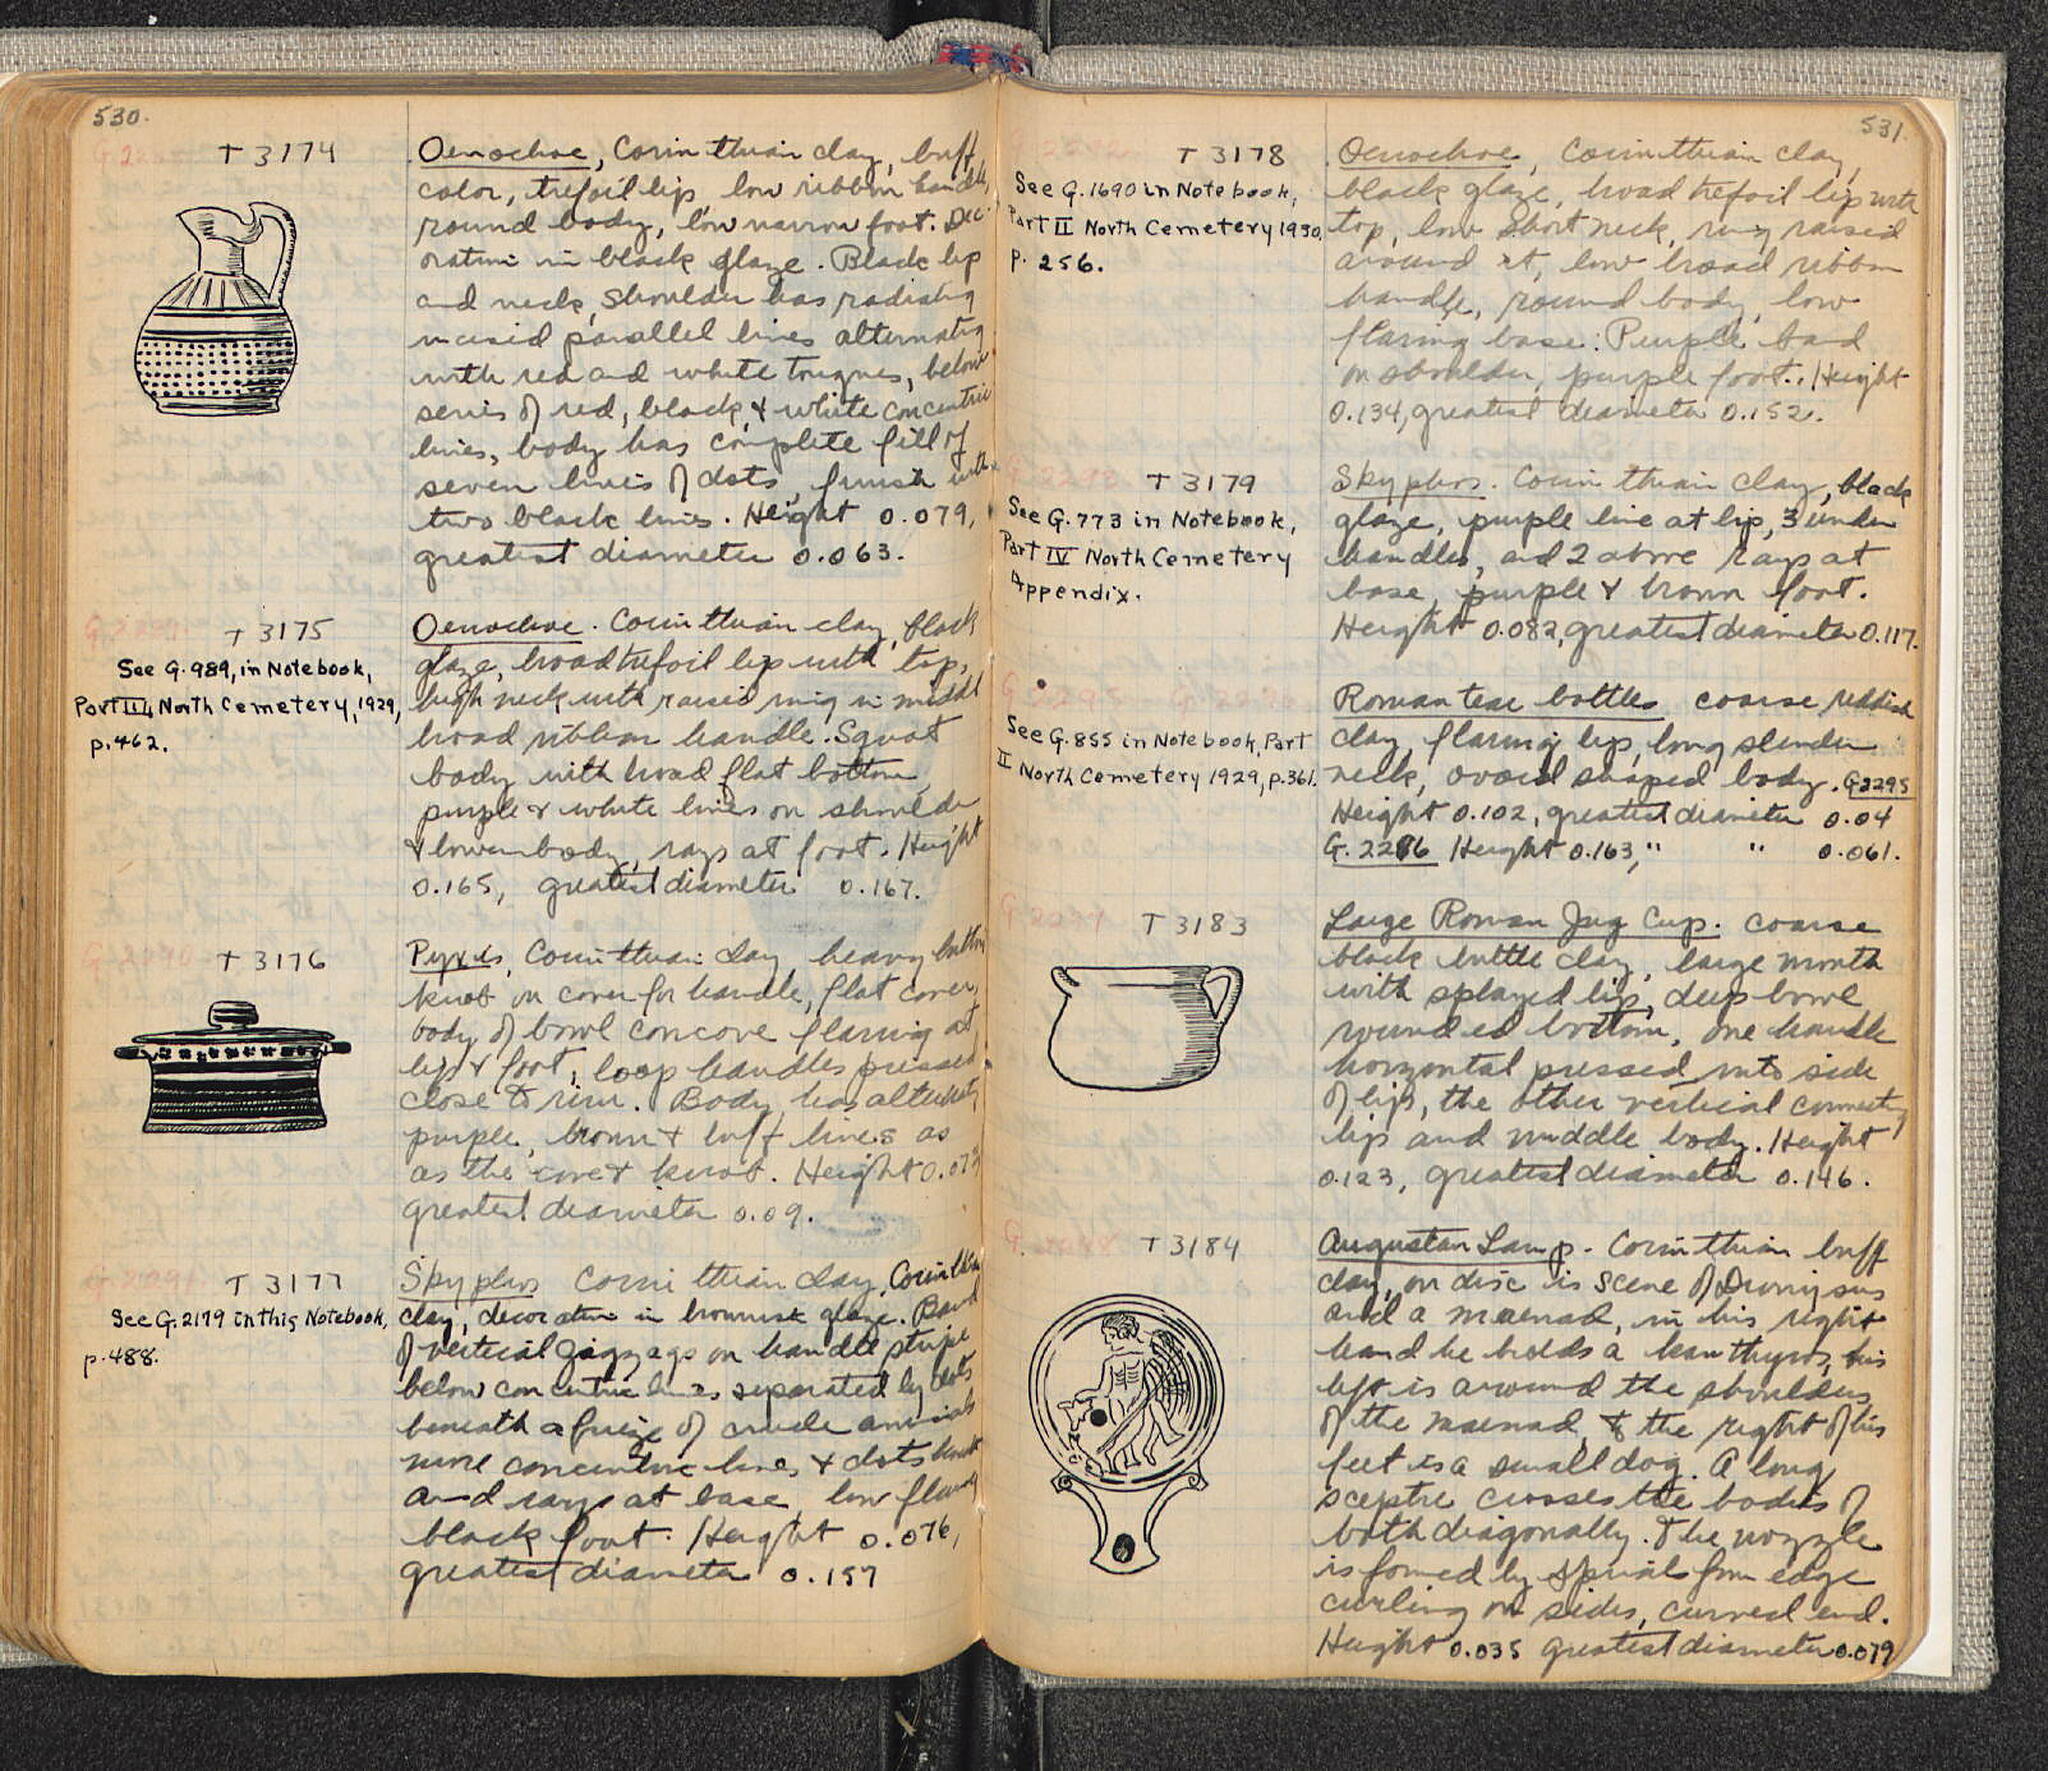 530.
T 3174
Oenochoe, Corinthian clay, buff
color, trefoil lip, low ribbon handle,
round body, low narrow foot. Dec-
oration in black glaze. Black lip
and neck, shoulder has radiating
incised parallel lines alternating
with red and white tongues, below
series of red, black, & white concentric
lines, body has complete fill of
seven lines of dots, finish with
two black lines. Height 0.079,
greatest diameter 0.063.
T 3175
See G. 989, in Notebook,
Part III, North Cemetery, 1929,
p. 462.
Oenochoe. Corinthian clay, black
glaze, broad trefoil lip with top,
high neck with raised ring in middle
broad ribbon handle. Squat
body with broad flat bottom,
purple & white lines on shoulder
& lower body, rays at foot. Height
0.165, greatest diameter 0.167.
T 3176
Pyxis, Corinthian clay, heavy button
knob on cover for handle, flat cover,
body of bowl concave flaring at
lip & foot, loop handles pressed
close to rim. Body has alternate
purple, brown & buff lines as
as the cover & knob. Height 0.073
greatest diameter 0.09.
T 3177
See G. 2179 in this Notebook,
p. 488.
Skyphos Corinthian clay, Corinthian
clay, decoration in brownish glaze. Band
of vertical zigzags on handle stripe
below concentric lines separated by dots
beneath a frieze of crude animals
more concentric lines & dots beneath
and rays at base, low flaring
black foot. Height 0.076,
greatest diameter 0.157
531.
T 3178
See G. 1690 in Notebook,
Part II North Cemetery 1930,
p. 256.
Oenochoe, Corinthian clay,
black glaze, broad trefoil lip with
top, low short neck, ring raised
around it, low broad ribbon
handle, round body, low
flaring base. Purple band
on shoulder, purple foot. Height
0.134, greatest diameter 0.152.
T 3179
See G. 773 in Notebook,
Part IV North Cemetery
Appendix.
Skyphos. Corinthian clay, black
glaze, purple line at lip, 3 under
handles, and 2 above rays at
base, purple & brown foot.
Height 0.082, greatest diameter 0.117.
See G. 855 in Notebook, Part
II North Cemetery 1929, p. 361.
Roman tear bottles coarse reddish
clay, flaring lip, long slender
neck, ovoid shaped body. G2295
Height 0.102, greatest diameter 0.04
G. 2286 Height 0.163, " " 0.061.
T 3183
Large Roman Jug Cup. Coarse
black brittle clay, large mouth
with splayed lip, deep bowl
rounded bottom, one handle
horizontal pressed into side
of lip, the other vertical connecting
lip and middle body. Height
0.123, greatest diameter 0.146.
T 3184
Augustan Lamp. Corinthian buff
clay, on disc is scene of Dionysus
and a maenad, in his right
hand he holds a kantharos, his
left is around the shoulders
of the maenad, & the right of his
feet is a small dog. A long
sceptre crosses the bodies of
both diagonally. The nozzle
is formed by spirals from edge
curling on sides, curved end.
Height 0.035 greatest diameter 0.079